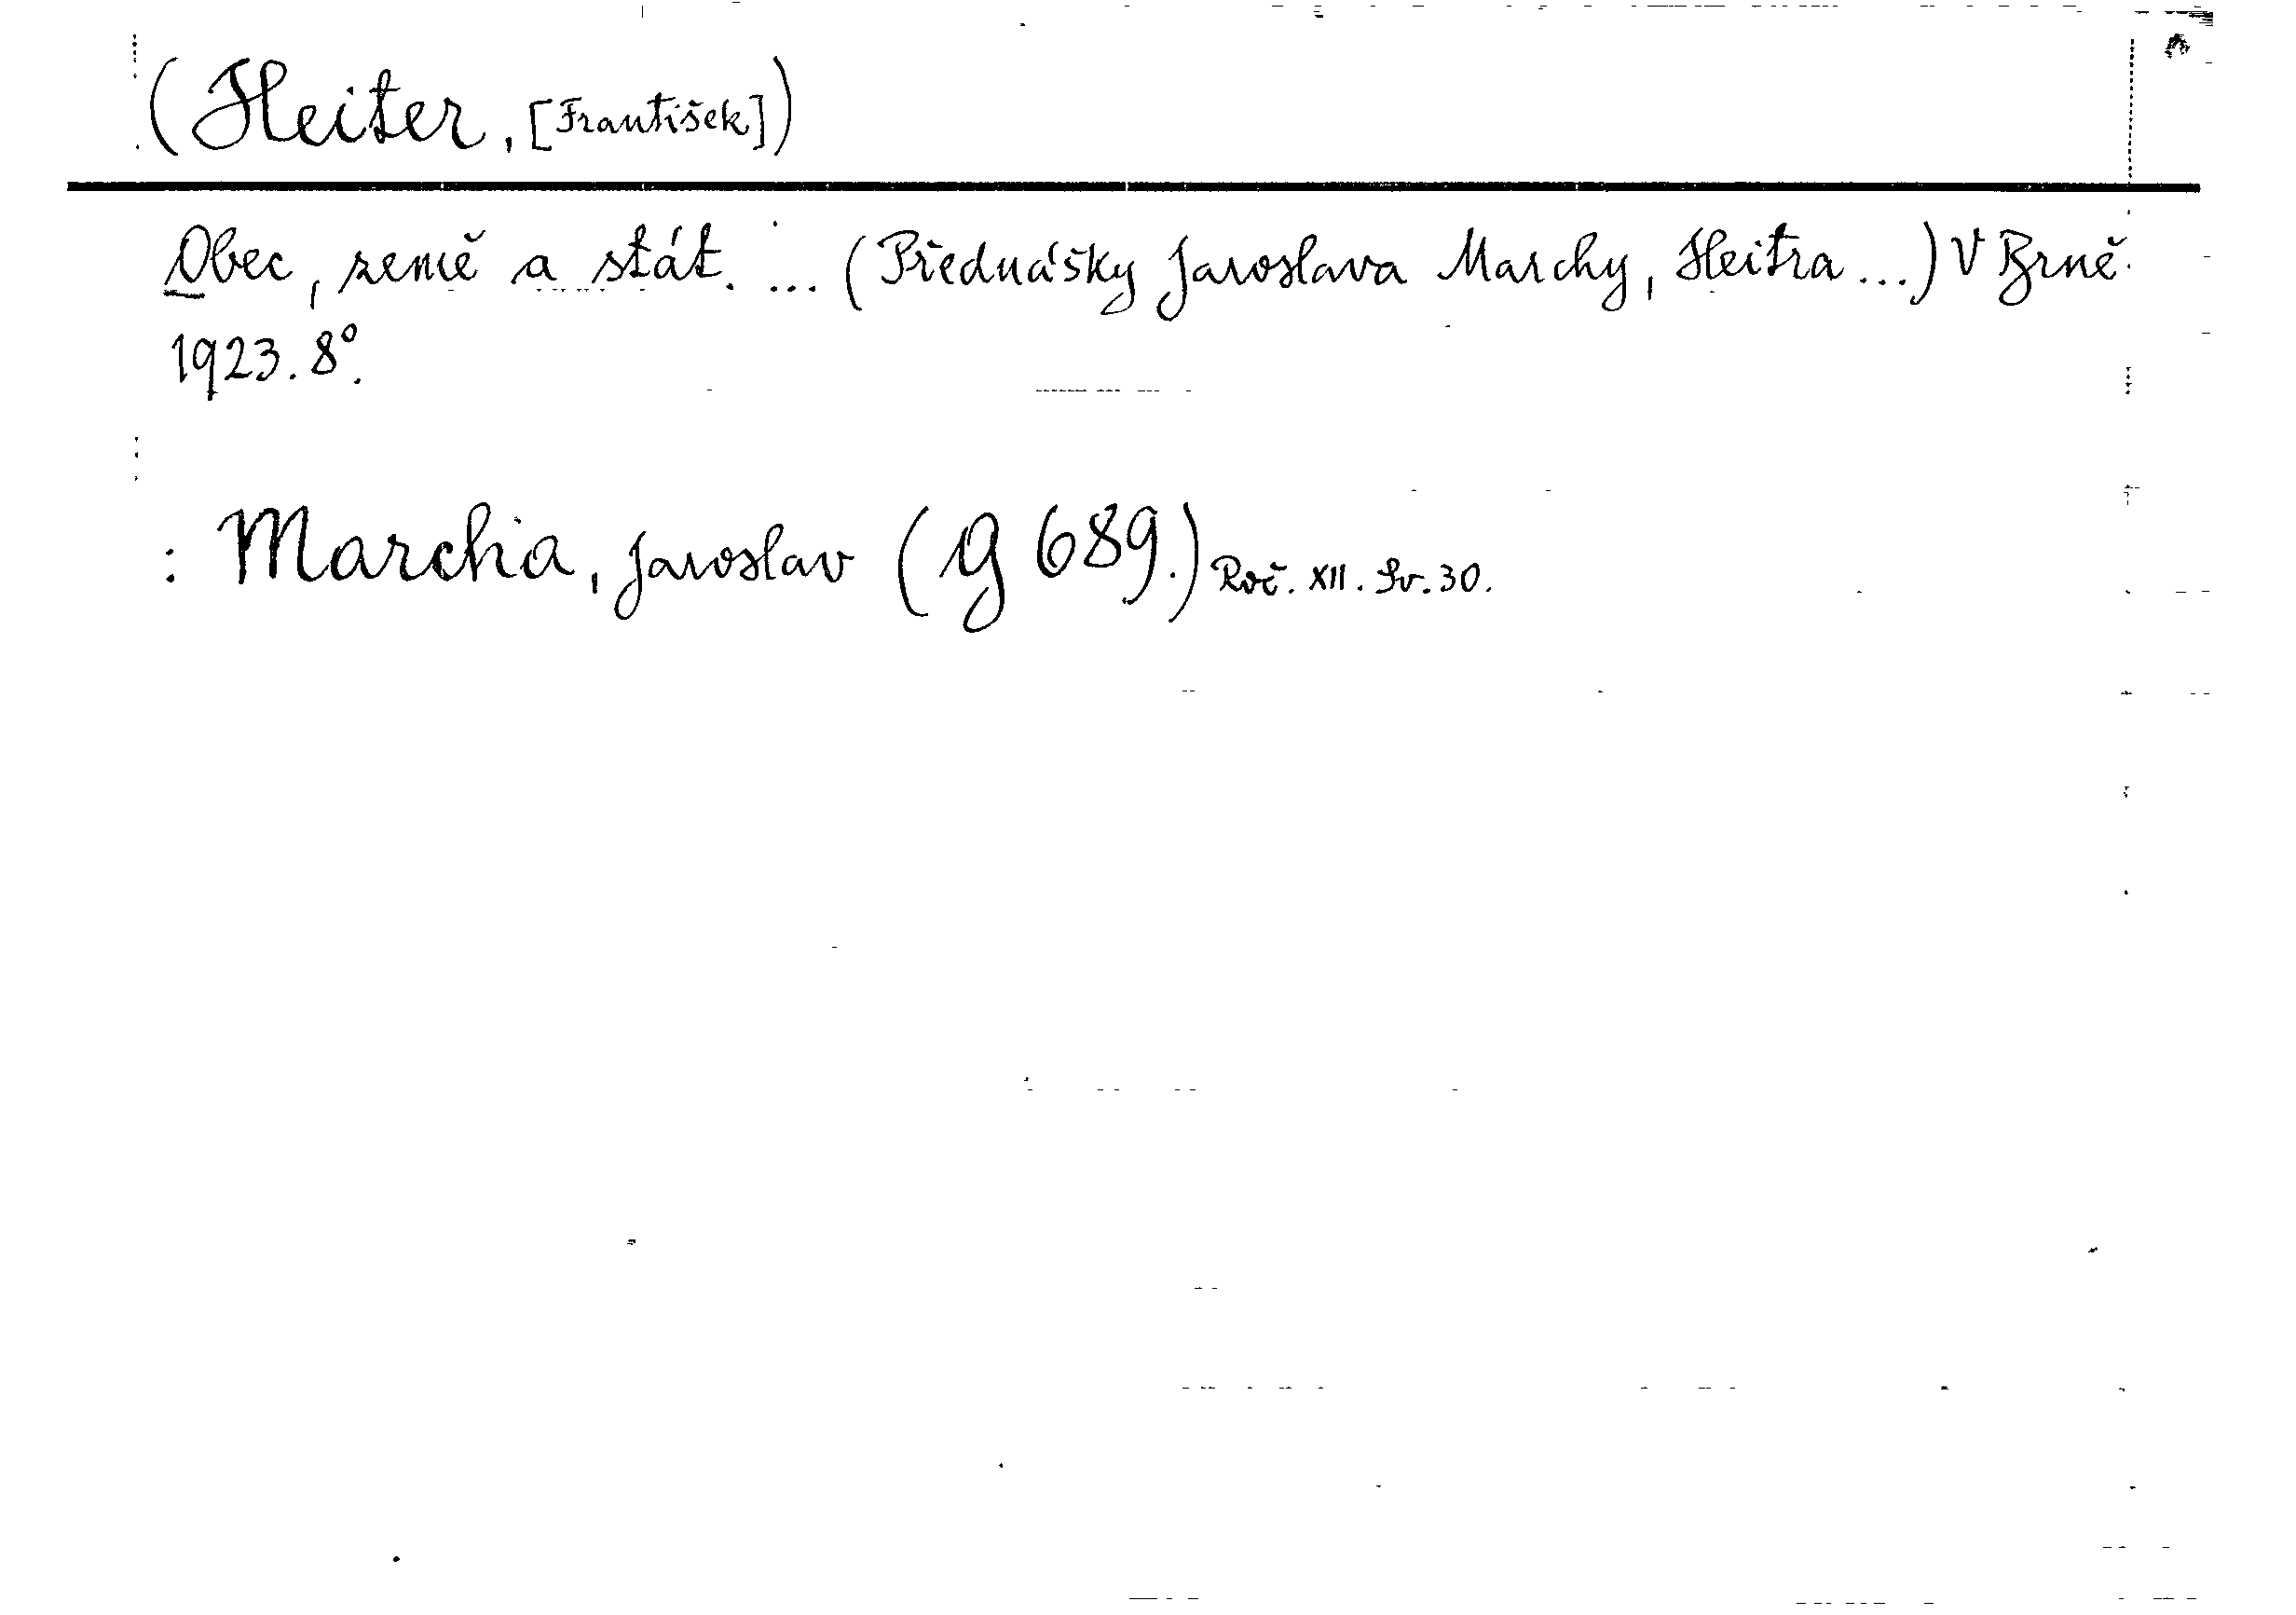 (Heiter, [František])
Obec, země a stát. ... (Přednášky Jaroslava Marchy, Heitra ...) V Brně
1923. 8°.
: Marcha, Jaroslav (g 689.) Roč. XII. Sv. 30.